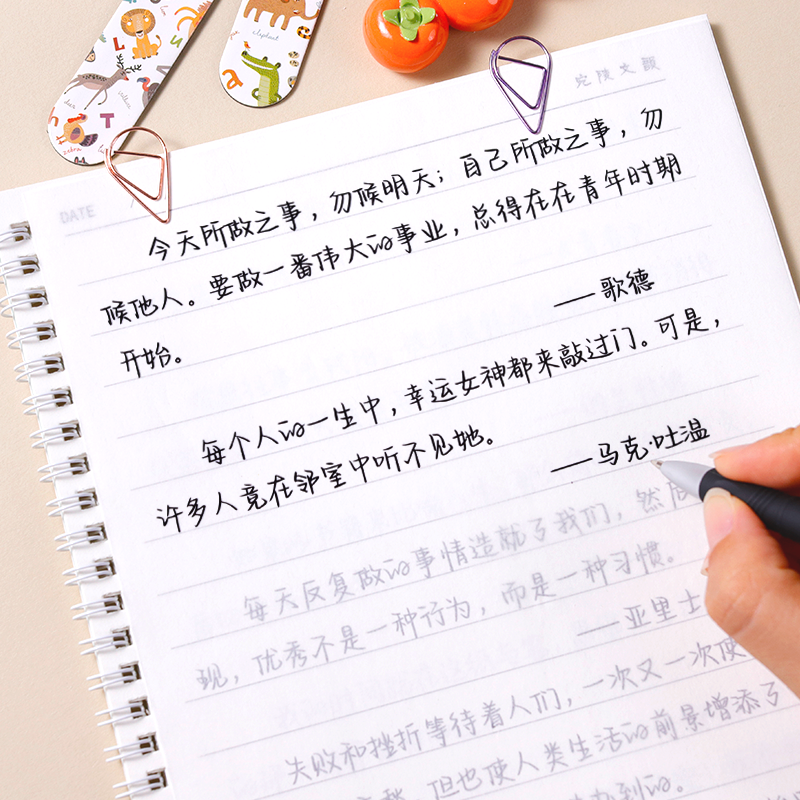 宛陵文颢
DATE
今天所做之事，勿候明天；自己所做之事，勿
候他人。要做一番伟大的事业，总得在在青年时期
开始。
——歌德
每个人的一生中，幸运女神都来敲过门。可是，
许多人竟在邻室中听不见她。
——马克·吐温
每天反复做的事情造就了我们，然后
现，优秀不是一种行为，而是一种习惯。
——亚里士
失败和挫折等待着人们，一次又一次使
但也使人类生活的前景增添了
办到的。
elephant
deer
zebra